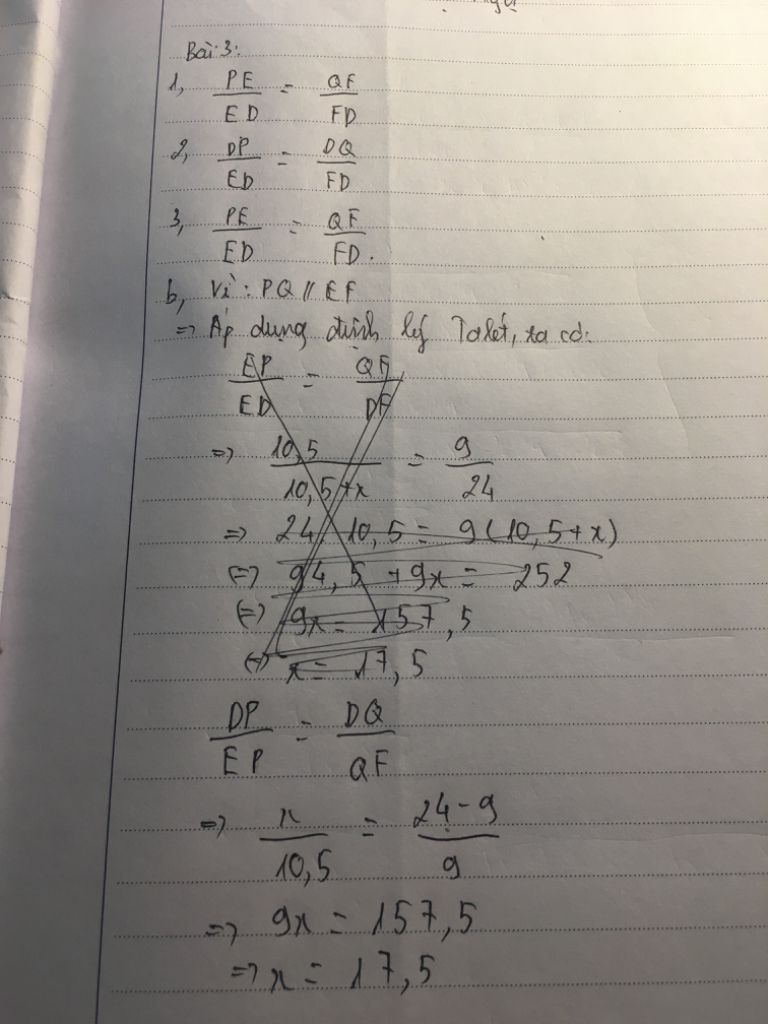 Bài 3:
1, PE/ED = QF/FD
2, DP/ED = DQ/FD
3, PE/ED = QF/FD.
b, Vì: PQ // EF
=> Áp dụng định lý Talét, ta có:
EP/ED = QF/DF
=> 10,5/10,5+x = 9/24
=> 24. 10,5 = 9(10,5+x)
(=) 94,5 + 9x = 252
(=) 9x = 157,5
(=) x = 17,5
DP/EP = DQ/QF
=> x/10,5 = 24-9/9
=> 9x = 157,5
=> x = 17,5